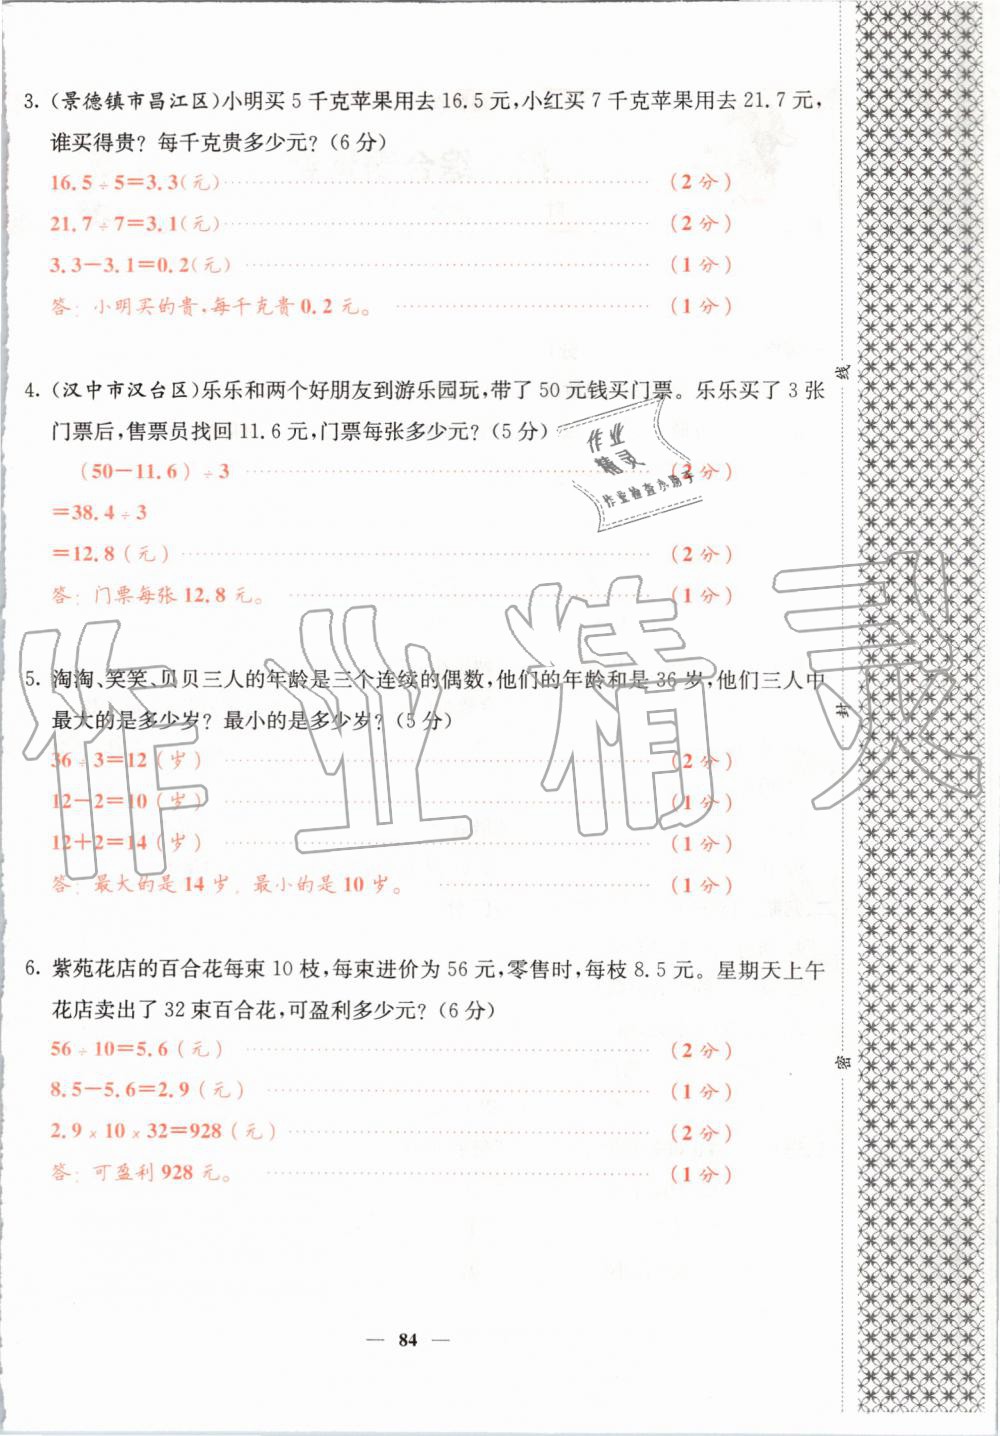 3. (景德镇市昌江区)小明买 5 千克苹果用去 16.5 元,小红买 7 千克苹果用去 21.7 元,
谁买得贵? 每千克贵多少元? (6 分)
16.5÷5=3.3(元) (2 分)
21.7÷7=3.1(元) (2 分)
3.3-3.1=0.2(元) (1 分)
答: 小明买的贵,每千克贵 0.2 元。 (1 分)
4. (汉中市汉台区)乐乐和两个好朋友到游乐园玩,带了 50 元钱买门票。乐乐买了 3 张
门票后,售票员找回 11.6 元,门票每张多少元? (5 分)
(50-11.6)÷3 (2 分)
=38.4÷3
=12.8(元) (2 分)
答: 门票每张 12.8 元。 (1 分)
5. 淘淘、笑笑、贝贝三人的年龄是三个连续的偶数,他们的年龄和是 36 岁,他们三人中
最大的是多少岁? 最小的是多少岁? (5 分)
36÷3=12(岁) (2 分)
12-2=10(岁) (1 分)
12+2=14(岁) (1 分)
答: 最大的是 14 岁, 最小的是 10 岁。 (1 分)
6. 紫苑花店的百合花每束 10 枝,每束进价为 56 元,零售时,每枝 8.5 元。星期天上午
花店卖出了 32 束百合花,可盈利多少元? (6 分)
56÷10=5.6(元) (2 分)
8.5-5.6=2.9(元) (1 分)
2.9×10×32=928(元) (2 分)
答: 可盈利 928 元。 (1 分)
— 84 —
线
封
密
作业
精灵
作业检查小助手
作业精灵